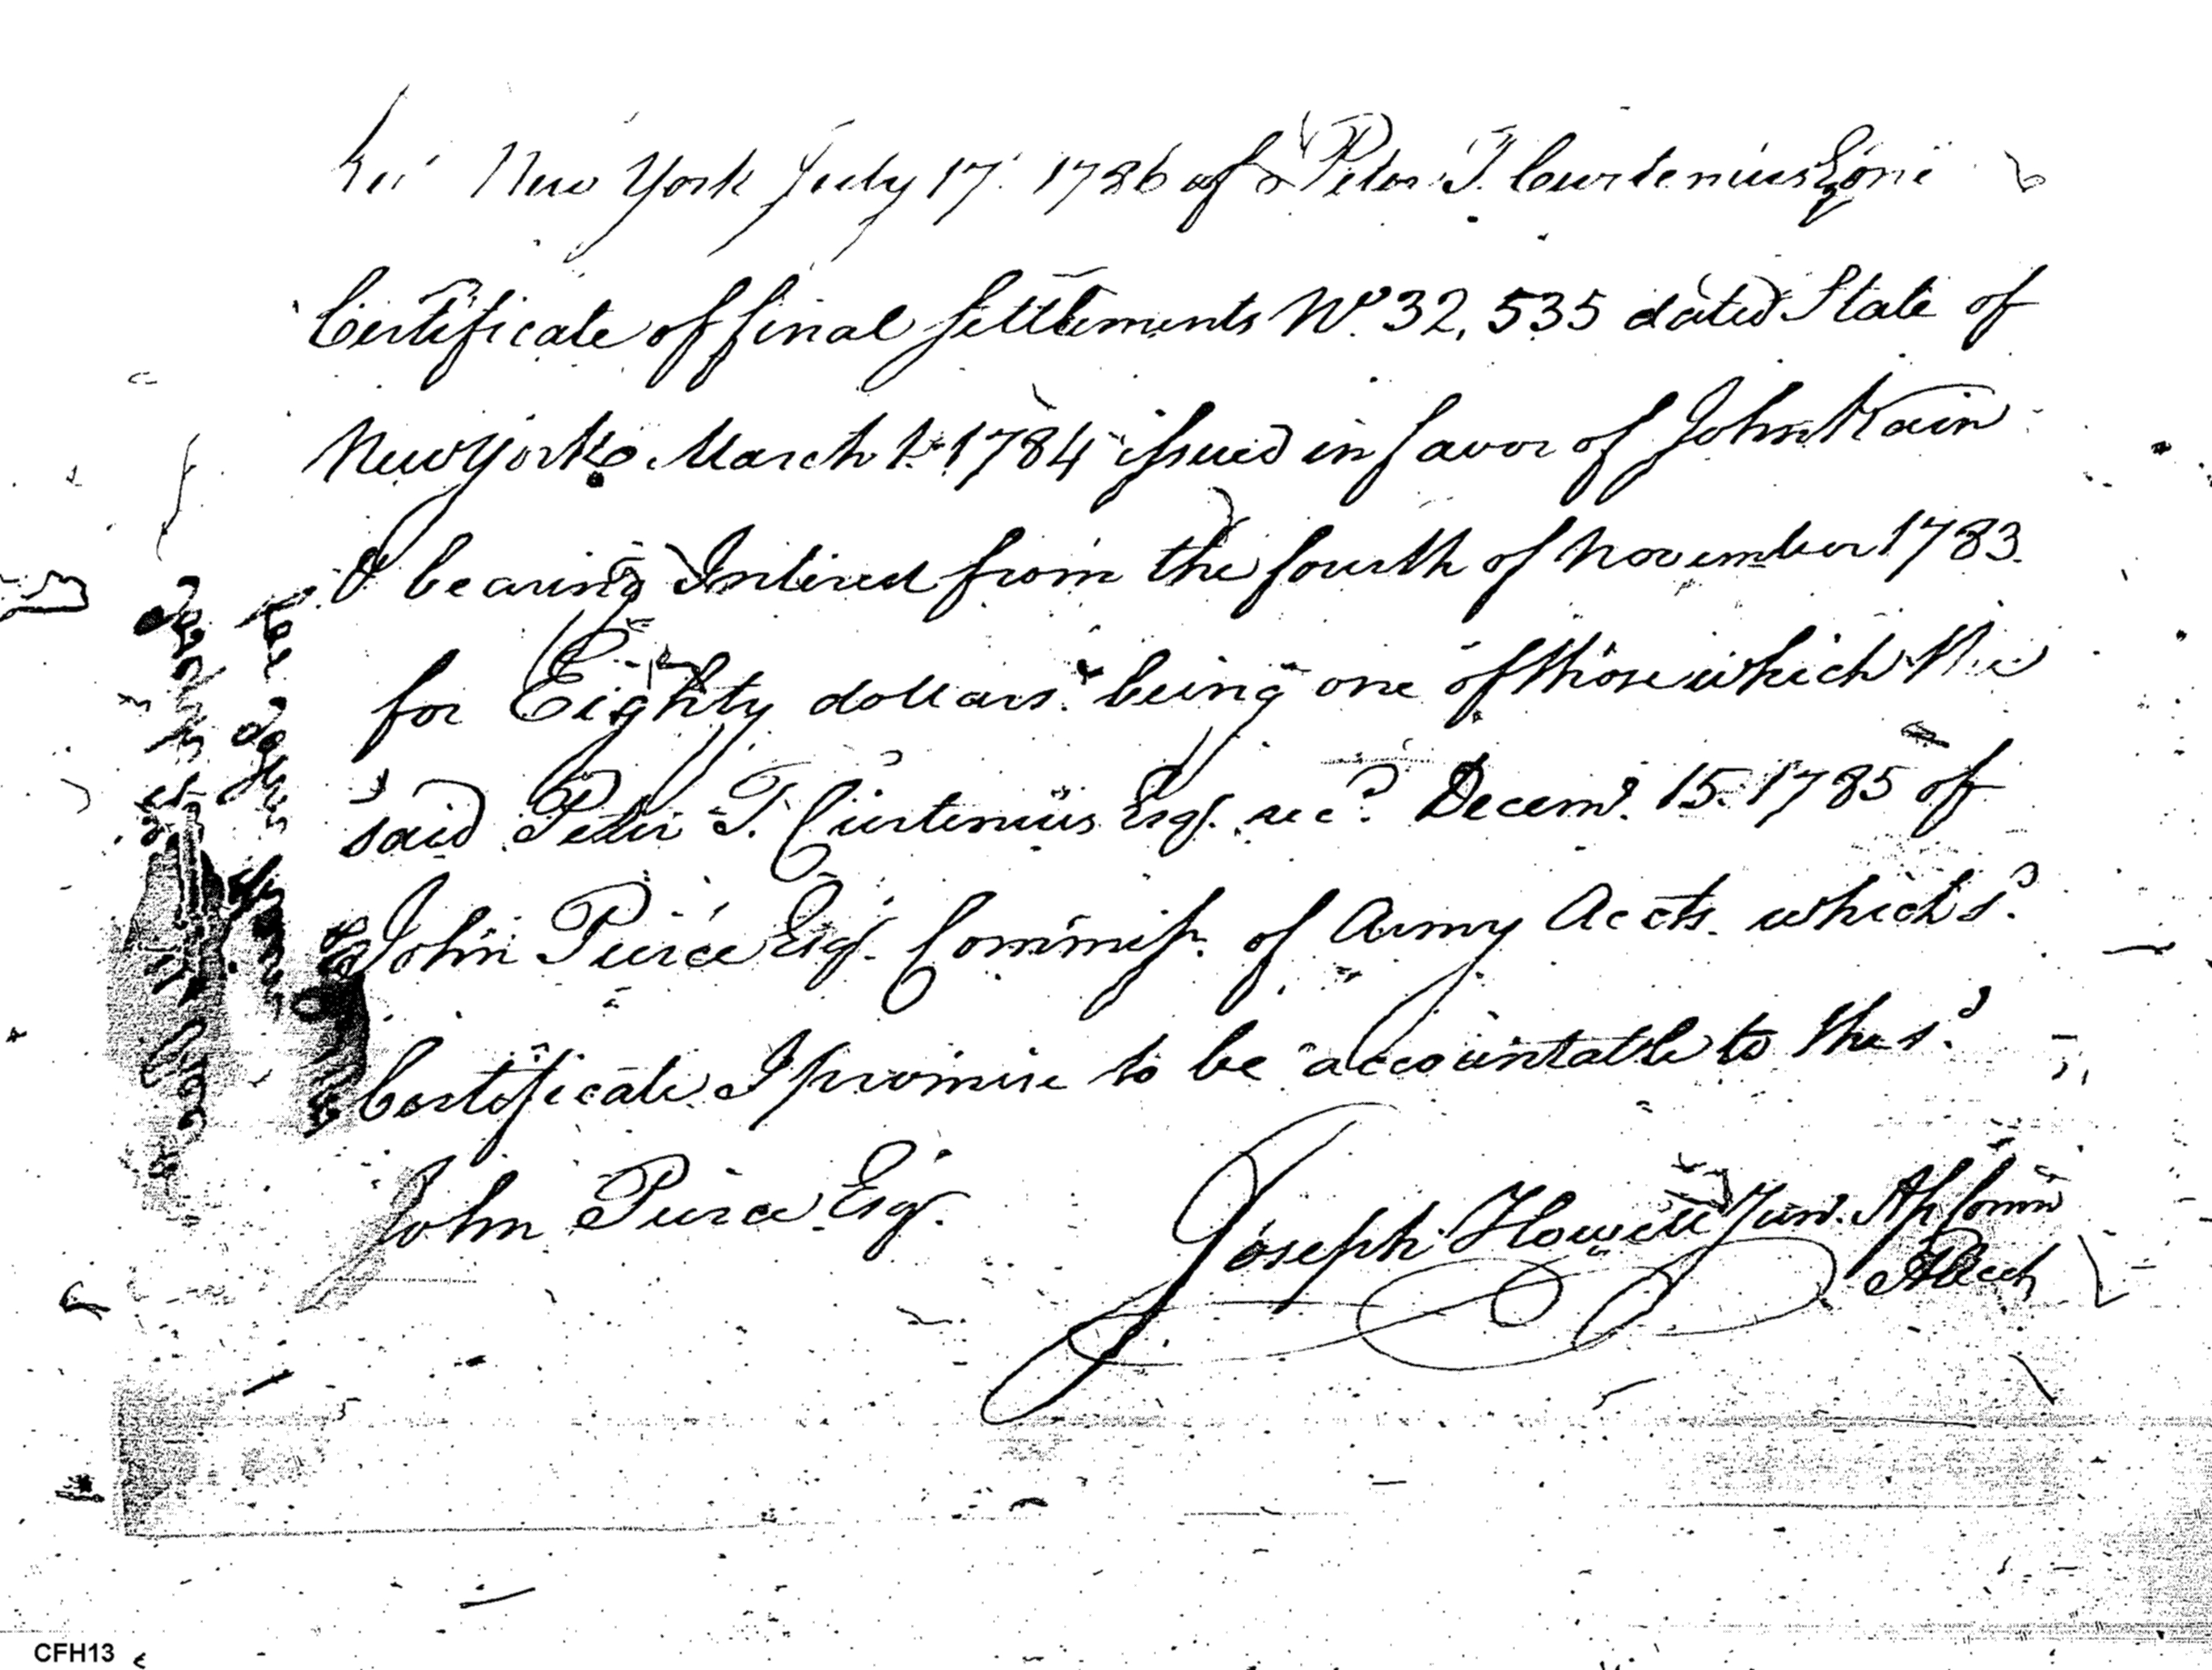 Rec'd New York July 17. 1786 of Peter T. Curtenius Esqr one
Certificate of final Settlements No. 32,535 dated State of
New York March 1. 1784 issued in favor of John Kain
& bearing Interest from the fourth of November 1783.
for Eighty dollars. being one of those which the
said Peter T. Curtenius Esqr. recd. Decemr. 15. 1785 of
John Pierce Esqr. Commissr. of Army Accts. which sd.
Certificate I promise to be accountable to the sd.
John Pierce Esqr.
Joseph Howell Junr. Ass Comm
A Acct
CFH13